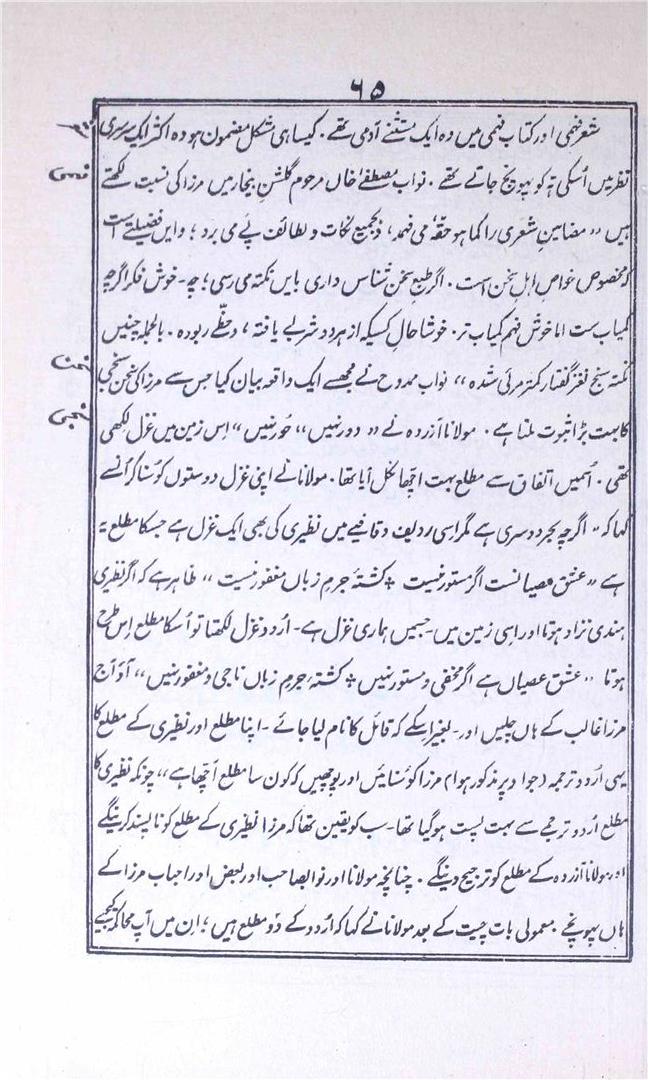 ۶۵
شعر فہمی اور کتاب فہمی میں وہ ایک مستثنے آدمی تھے ۔ کیسا ہی مشکل مضمون ہو وہ اکثر ایک سرسری
نظر میں اُسکی تہ کو پہونچ جاتے تھے ۔ نواب مصطفےٰ خاں مرحوم گلشنِ بیخار میں مرزا کی نسبت لکھتے
ہیں ،، مضامینِ شعری را کما ہو حقہٗ می فہمد، و بجمیع نکات و لطائف پے می برد ؛ و ایں فضیلتے است
کہ مخصوص خواصِ اہلِ سخن است ۔ اگر طبع سخن شناس داری بایں نکتہ می رسی ؛ چہ - خوش فکر اگرچہ
کمیاب ست اما خوش فہم کمیاب تر ۔ خوشا حال کسیکہ از ہر دو شربے یافتہ ، و حظّے ربودہ ۔ بالجملہ چنیں
نکتہ سنج نغز گفتار کمتر مرئی شدہ ،، نواب ممدوح نے مجھسے ایک واقعہ بیان کیا جس سے مرزا کی سخن سنجی
کا بہت بڑا ثبوت ملتا ہے ۔ مولانا آزردہ نے ،، دور نہیں ،، حُور نہیں ،، اِس زمین میں غزل لکھی
تھی ۔ اُسمیں اتفاق سے مطلع بہت اچھا نکل آیا تھا ۔ مولانا نے اپنی غزل دوستوں کو سُنا کر اُنسے
کہا کہ ،، اگرچہ بحر دوسری ہے مگر اسی ردیف و قافیے میں نظیری کی بھی ایک غزل ہے جسکا مطلع یہ
ہے ،، عشق عصیانست اگر مستور نیست ؞ کشتۂ جرمِ زباں مغفور نیست ،، ظاہر ہے کہ اگر نظیری
ہندی نژاد ہوتا اور اسی زمین میں - جسمیں ہماری غزل ہے - اُردو غزل لکھتا تو اُسکا مطلع اِس طرح
ہوتا ،، عشق عصیاں ہے اگر مخفی و مستور نہیں ؞ کشتۂ جرمِ زباں ناجی و مغفور نہیں ،، آؤ آج
مرزا غالب کے ہاں چلیں اور - بغیر اسکے کہ قائل کا نام لیا جائے - اپنا مطلع اور نظیری کے مطلع کا
یہی اُردو ترجمہ (جو اوپر مذکور ہوا) مرزا کو سُنائیں اور پوچھیں کہ کون سا مطلع اچھا ہے ،، چونکہ نظیری کا
مطلع اُردو ترجمے سے بہت پست ہو گیا تھا - سب کو یقین تھا کہ مرزا نظیری کے مطلع کو ناپسند کرینگے
اور مولانا آزردہ کے مطلع کو ترجیح دینگے ۔ چنانچہ مولانا اور نوابصاحب اور بعض اور احباب مرزا کے
ہاں پہونچے معمولی بات چیت کے بعد مولانا نے کہا کہ اُردو کے دو مطلع ہیں ؛ اِن میں آپ محاکمہ کیجیے